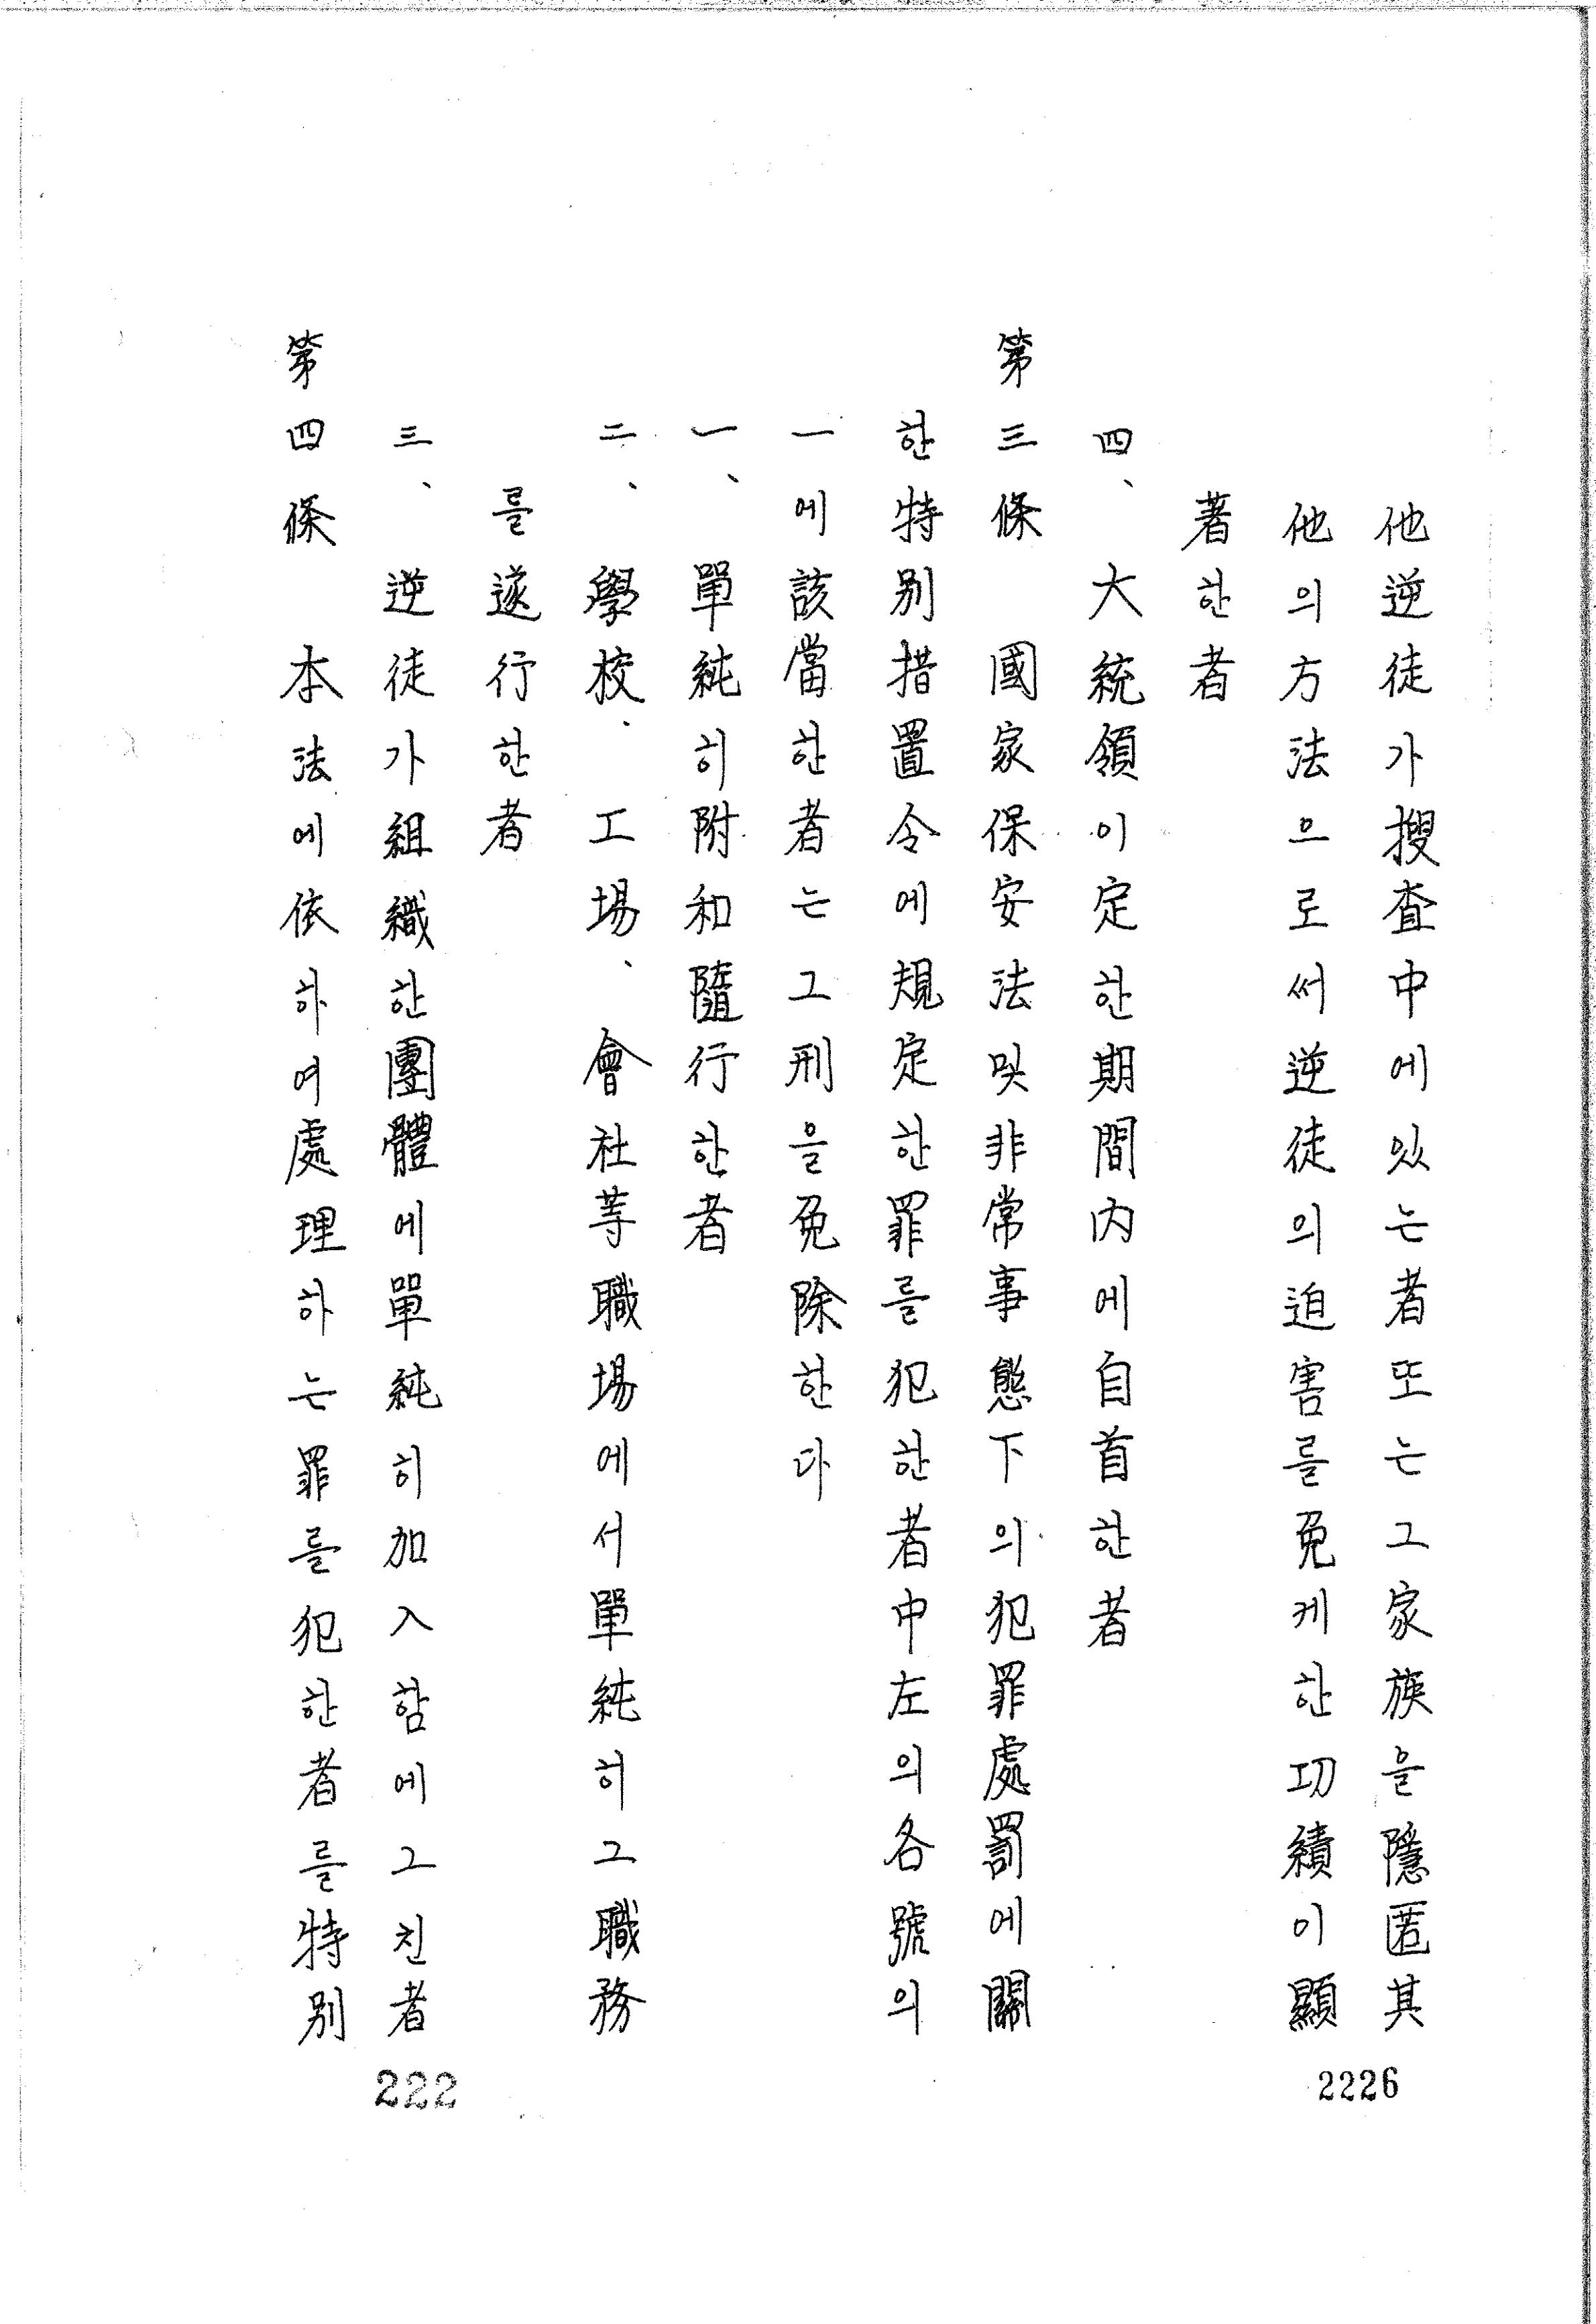 他逆徒가搜査中에있는者또는그家族을隱匿其
他의方法으로써逆徒의迫害를免케한功績이顯
著한者
四、大統領이定한期間内에自首한者
第三條 國家保安法및非常事態下의犯罪處罰에關
한特別措置令에規定한罪를犯한者中左의各號의
一에該當한者는그刑을免除한다
一、單純히附和隨行한者
二、學校、工場、會社等職場에서單純히그職務
를遂行한者
三、逆徒가組織한團體에單純히加入함에그친者
第四條 本法에依하여處理하는罪를犯한者를特別
2226
222